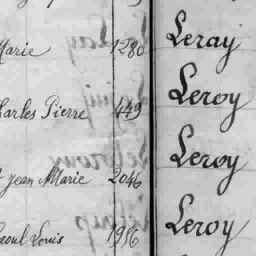 Marie 1280 Leray
Charles Pierre 449 Leroy
Jean Marie 2046 Leroy
Raoul Louis 1916 Leroy